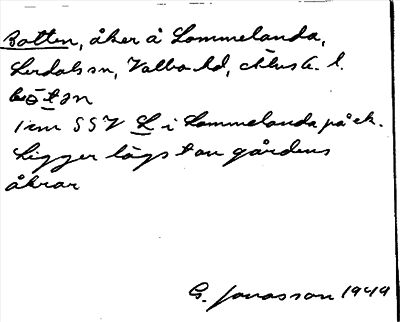 Botten, åker å Lommelanda,
Lerdals sn, Valbo hd, Älvsb. l.
bòtǝn
1 cm SSV L i Lommelanda på ek.
Ligger lägst av gårdens
åkrar
G. Jonasson 1949